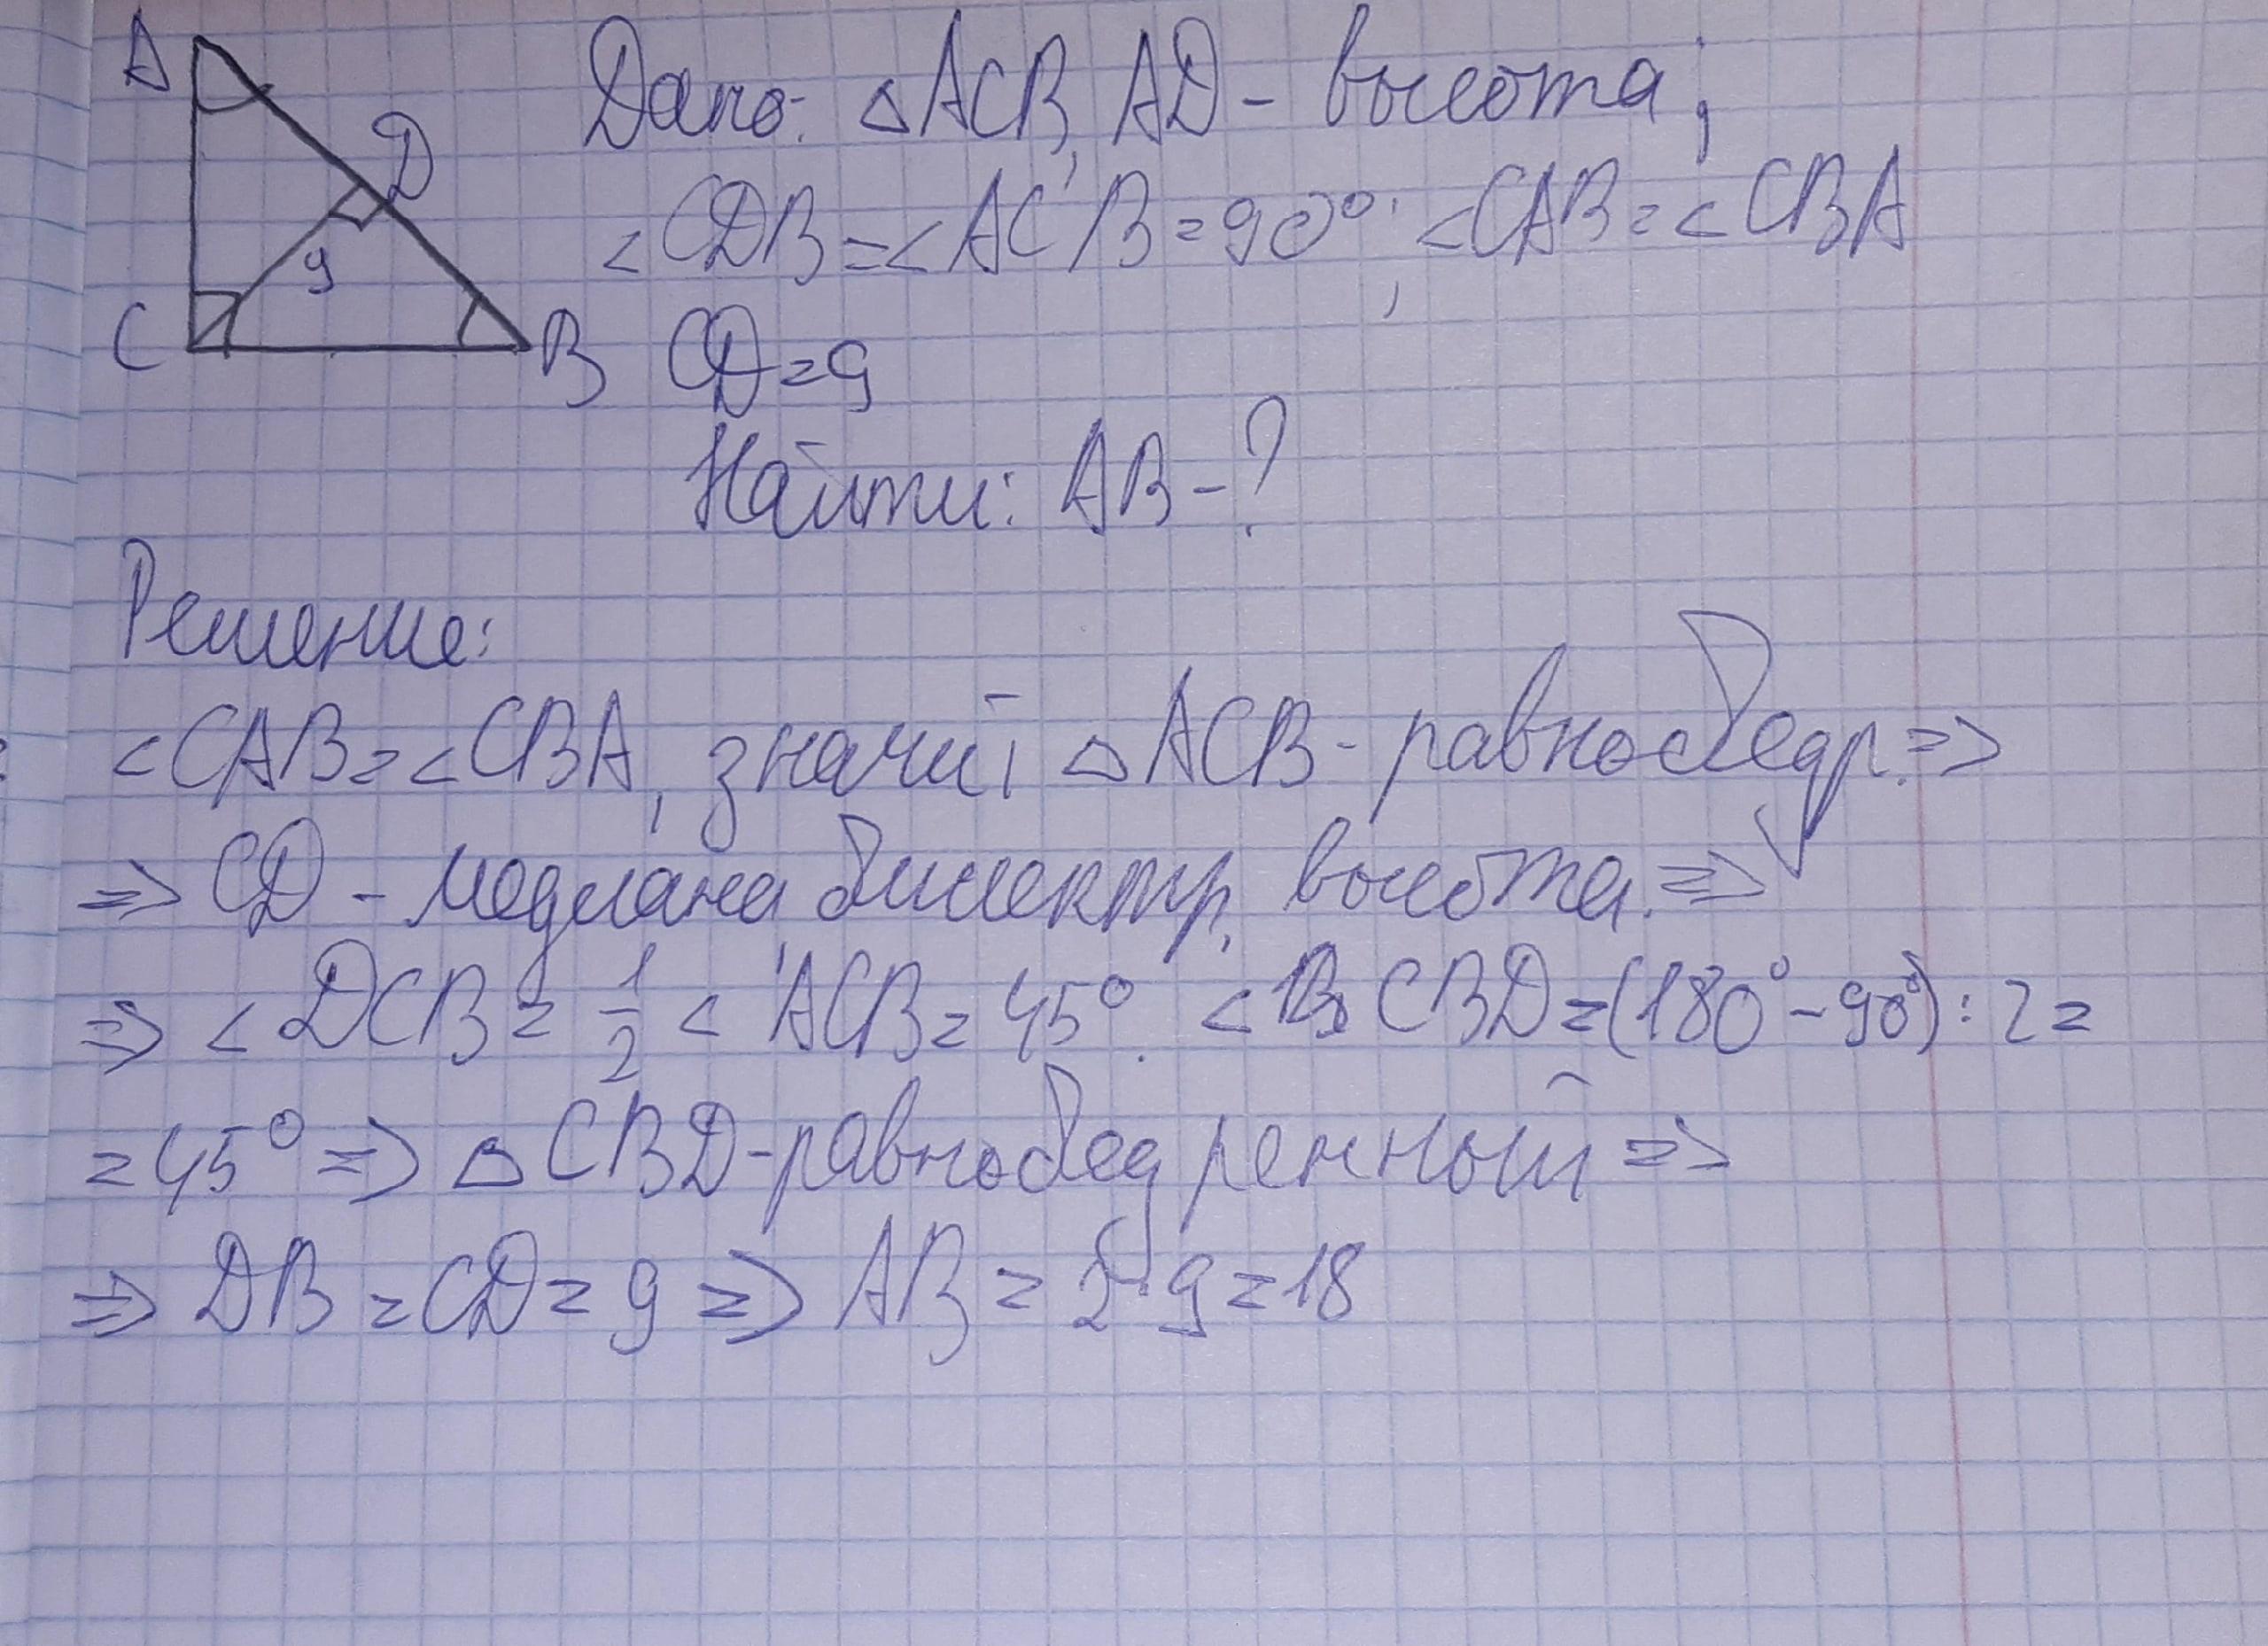 A
D
9
C
B
Дано: △ACB, AD - высота;
<CDB=<ACB=90°; <CAB=<CBA
CD=9
Найти: AB-?
Решение:
<CAB=<CBA, значит △ACB-равнобедр.=>
=> CD - медиана биссектр, высота.=>
=> <DCB= 1/2 <ACB=45°. <CBD=(180°-90°):2=
=45°=> △CBD-равнобедренный=>
=> DB=CD=9=> AB=2·9=18